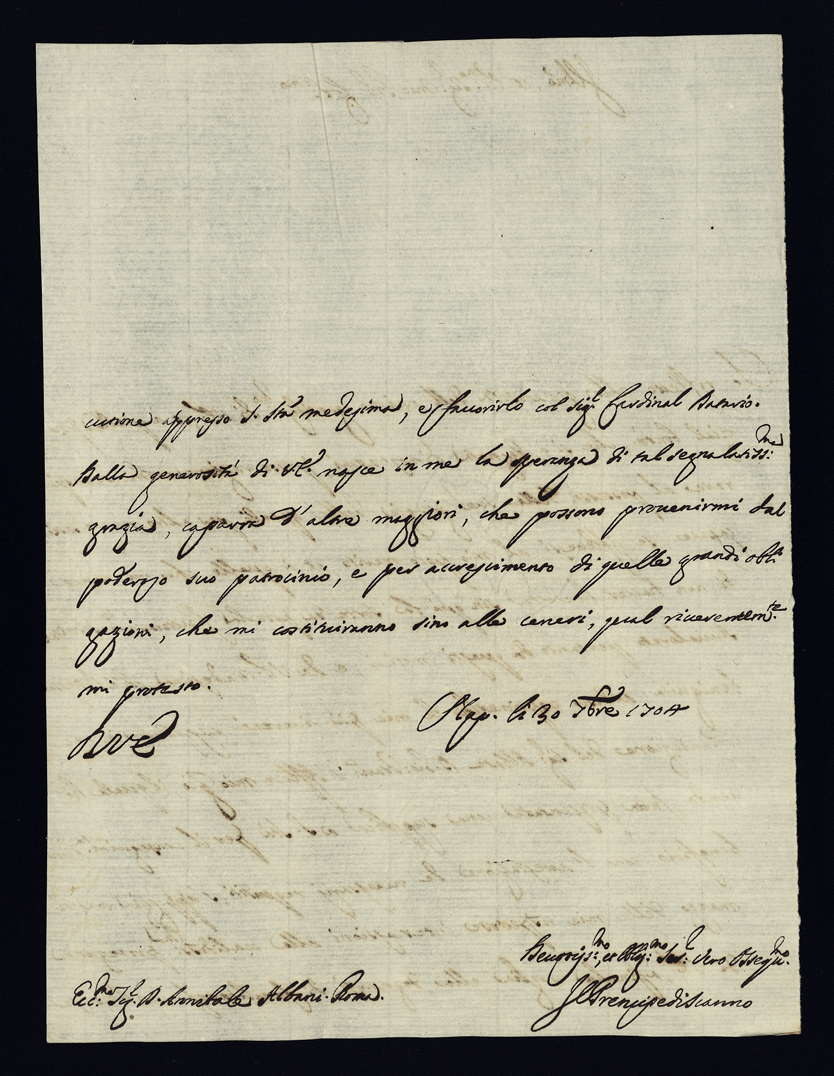 cutione appresso S. Stà medesima, e favorirlo col Sigr Cardinal
Dalla generosità di V.E. nasce in me la speranza di tal segnalatissma
grazia, caparra d'altre maggiori, che possono provenirmi dal
poderoso suo patrocinio, e per accrescimento di quelle grandi obli
gazioni, che mi costituiranno sino alle ceneri, qual riveremente
mi protesto.
Nap. li 30 7bre 1704
D.V.E.
Devotissmo, et Obligmo Serr vero Ossequmo
Il Prencipe di Scanno
Eccmo Sigr D. Annibale Albani. Roma.